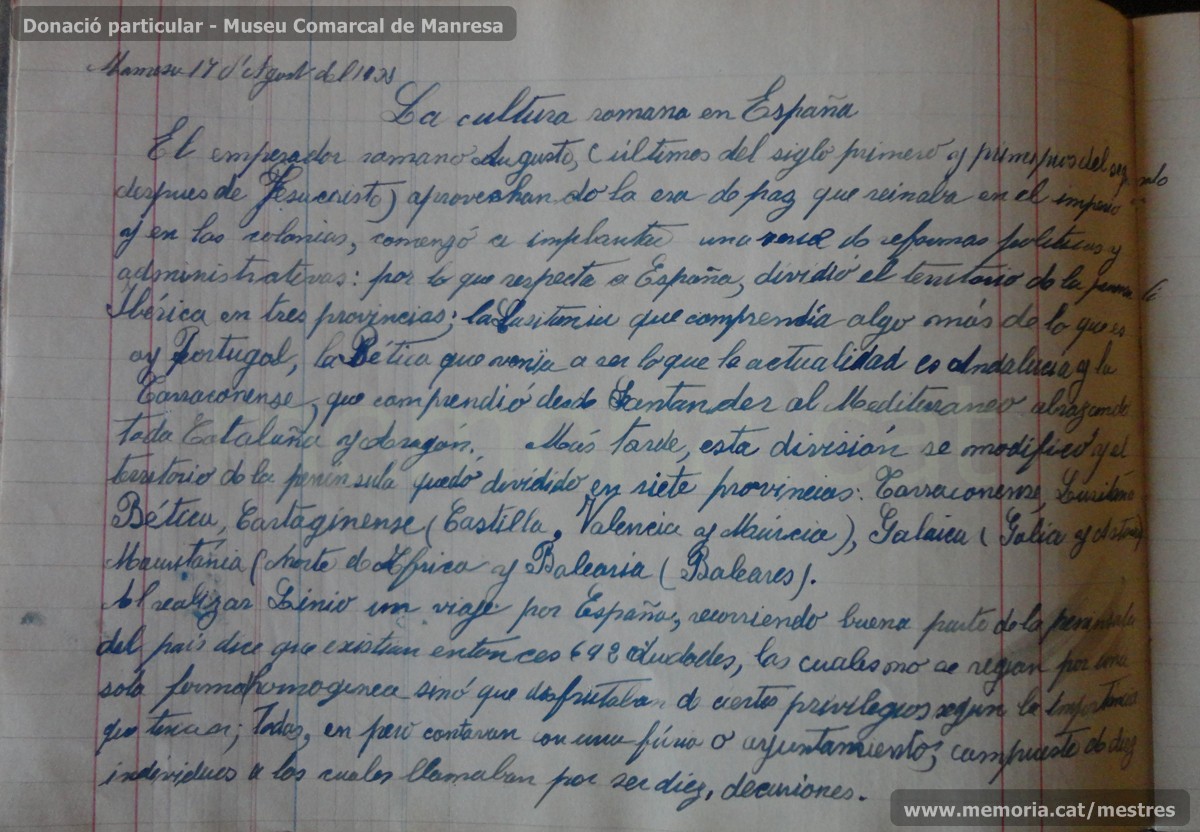 Donació particular - Museu Comarcal de Manresa
Manresa 17 d'Agost del
La cultura romana en España
El emperador romano Augusto, (últimos del siglo primero y principios del segundo
despues de Jesucristo) aprovechando la era de paz que reinaba en el imperio
y en las colonias, comenzó a implantar una serie de reformas políticas y
administrativas: por lo que respecta a España, dividió el territorio de la
Ibérica en tres provincias; la Lusitania que comprendía algo más de lo que es
oy Portugal, la Bética que venía a ser lo que la actualidad es Andalucía y la
Tarraconense, que comprendió desde Santander al Mediterraneo abrazando
toda Cataluña y Aragón. Más tarde, esta división se modificó y el
territorio de la península quedó dividido en siete provincias: Tarraconense, Lusitania
Bética, Cartaginense (Castilla, Valencia y Múrcia), Galaica (Gália y Asturias)
Mauritánia (Norte de Africa y Balearia (Baleares).
Al realizar Linio un viaje por España, recorriendo buena parte de la peninsula
del país dice que existian entonces 692 ciudades, las cuales no se regian por una
sola forma homoginea sinó que disfrutaban de ciertos privilegios segun la importancia
que tenian; todas, en però contavan con una o ayuntamiento, compuesto de diez
individuos a los cuales llamaban por ser diez, decuriones.
www.memoria.cat/mestres